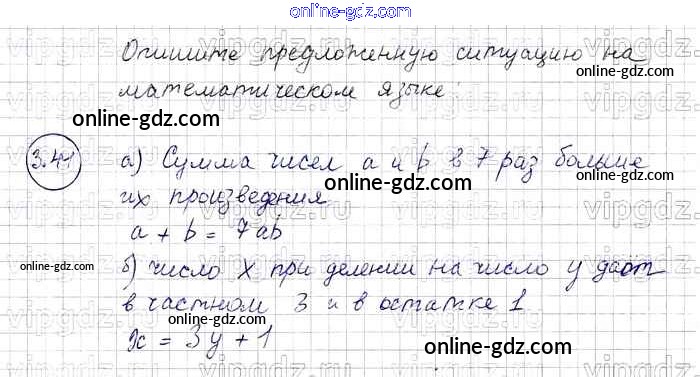 online-gdz.com
Опишите предложенную ситуацию на
online-gdz.com
математическом языке:
online-gdz.com
3.41
а) Сумма чисел a и b в 7 раз больше
online-gdz.com
online-gdz.com
их произведения
online-gdz.com
a + b = 7ab
б) число x при делении на число y даёт
online-gdz.com
online-gdz.com
в частном 3 и в остатке 1
online-gdz.com
x = 3y + 1
online-gdz.com
online-gdz.com